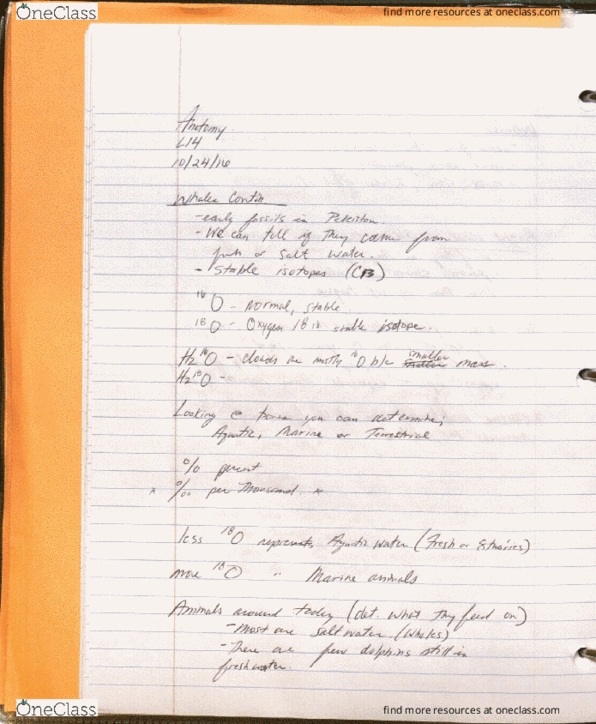 OneClass
find more resources at oneclass.com
Anatomy
L14
10/24/16
Whales Contin
- early fossils in Pakistan
- We can tell if they came from
fresh or salt water.
- Stable isotopes (CB)
16O - normal, stable
18O - Oxygen 18 is stable isotope.
H2 16O - clouds are mostly 16O b/c smaller mass.
H2 18O -
Looking @ bones you can determine;
Aquatic, Marine or Terrestrial
% percent
* ‰ per thousand *
less 18O represents Aquatic water (Fresh or
more 18O " Marine animals
Animals around today (det. what they feed on)
- Most are saltwater (whales)
- There are few dolphins still in
freshwater
OneClass
find more resources at oneclass.com